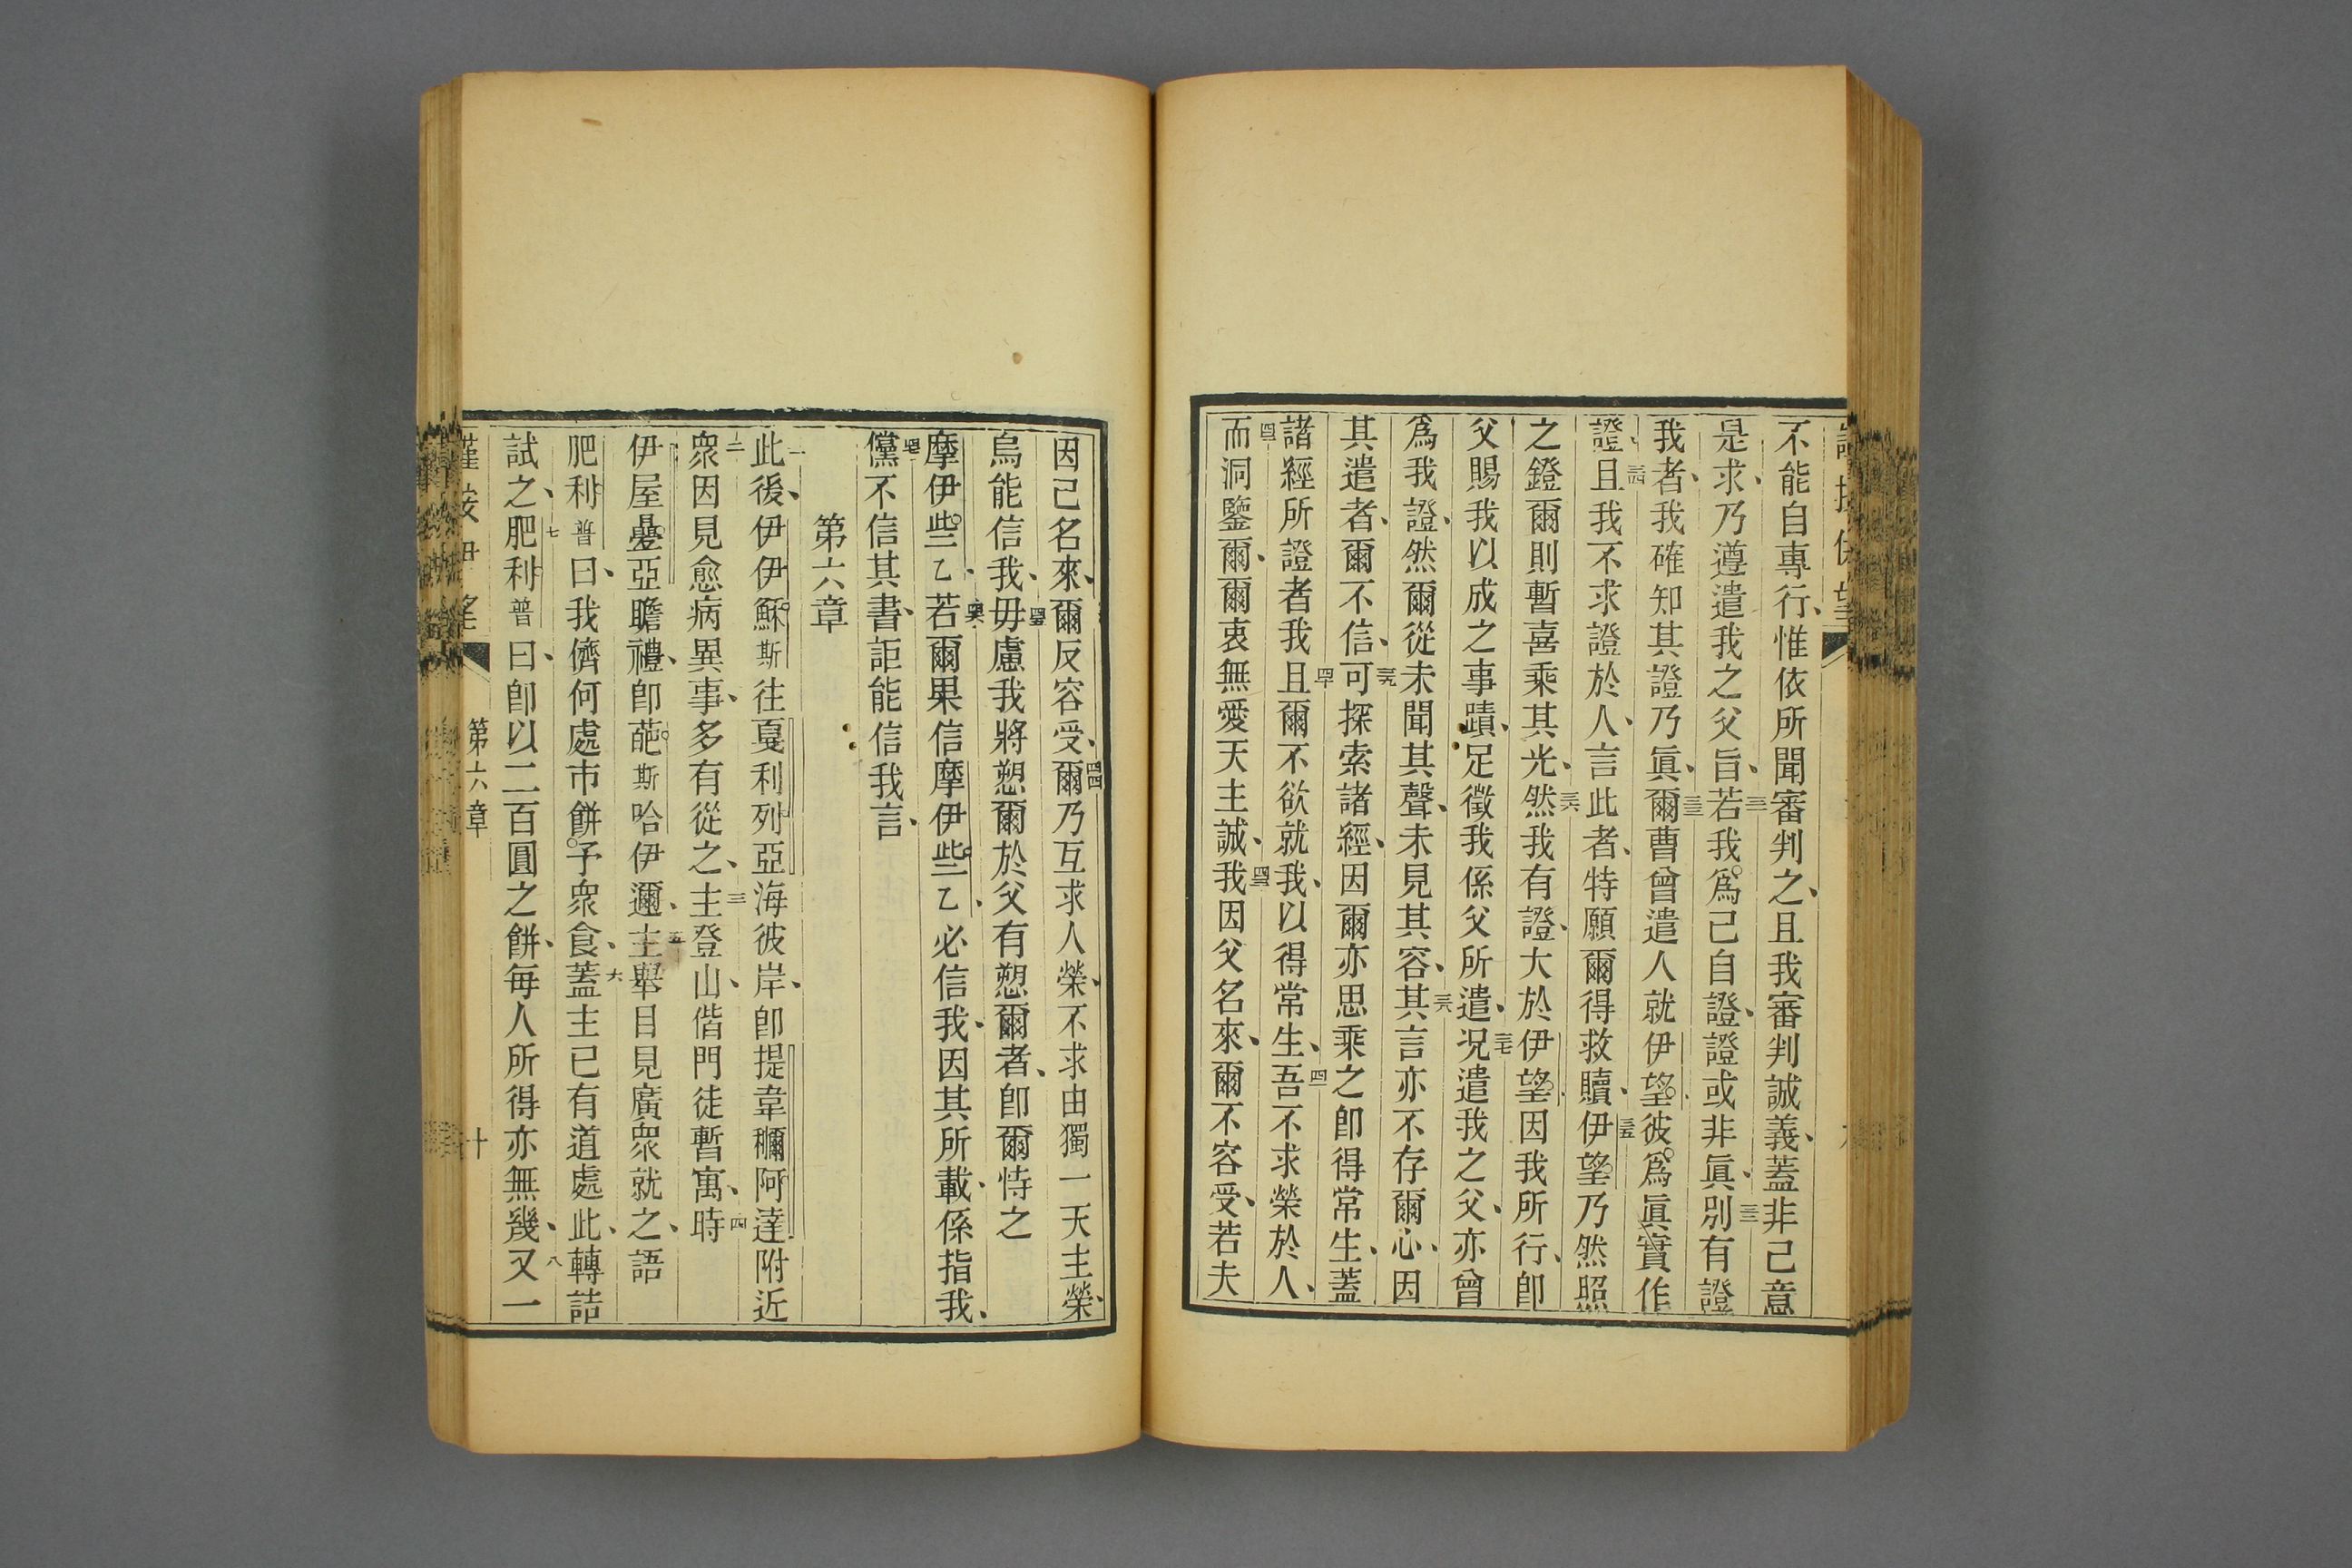 不能自專行、惟依所聞審判之、且我審判誠義、蓋非己意
是求、乃遵遣我之父旨、三一若我爲己自證、證或非眞、三二別有證
我者、我確知其證乃眞、三三爾曹曾遣人就伊望、彼爲眞實作
證、三四且我不求證於人、言此者、特願爾得救贖、三五伊望乃然照
之鐙爾則暫喜乘其光、三六然我有證、大於伊望因我所行、卽
父賜我以成之事蹟、足徵我係父所遣、三七況遣我之父、亦曾
爲我證、然爾從未聞其聲、未見其容、三八其言亦不存爾心、因
其遣者、爾不信、三九可探索諸經、因爾亦思乘之卽得常生、蓋
諸經所證者我、四十且爾不欲就我、以得常生、四一吾不求榮於人、
四二而洞鑒爾、爾衷無愛天主誠、四三我因父名來、爾不容受、若夫
因己名來、爾反容受、四四爾乃互求人榮、不求由獨一天主榮、
烏能信我、四五毋慮我將愬爾於父有愬爾者、卽爾恃之
摩伊些乙、四六若爾果信摩伊些乙、必信我、因其所載、係指我、
四七儻不信其書、詎能信我言、
第六章
一此後、伊伊穌斯往戛利列亞海彼岸、卽提韋穪阿達附近
二衆因見愈病異事、多有從之、三主登山、偕門徒暫寓、四時
伊屋疊亞瞻禮、卽葩斯哈伊邇、五主舉目見廣衆就之、語
肥利普曰、我儕何處市餅予衆食、六蓋主已有道處此、轉詰
試之、七肥利普曰、卽以二百圓之餅、每人所得亦無幾、八又一
第六章
十